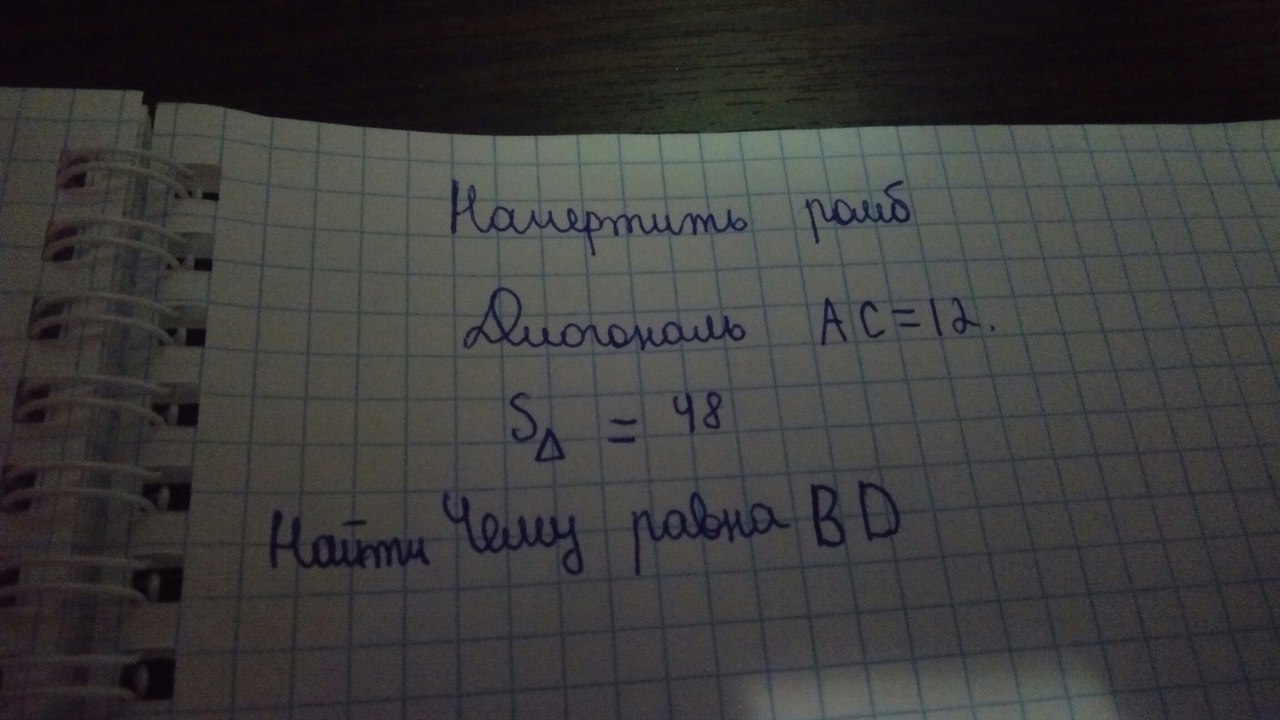 Начертить ромб
Диагональ AC=12.
S△ = 48
Найти Чему равна BD